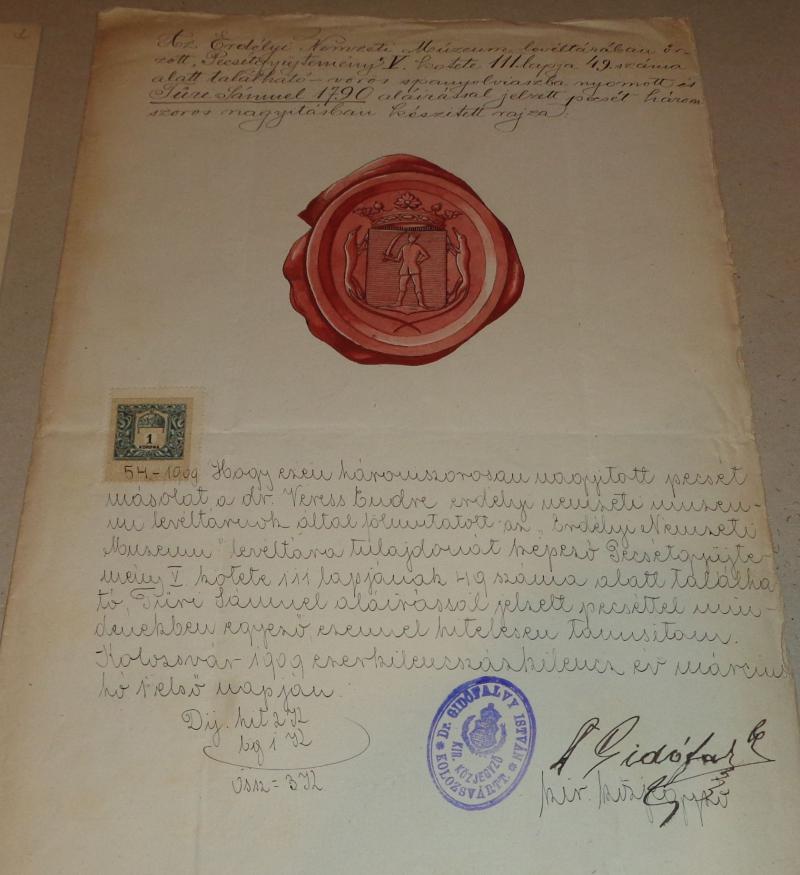 Az Erdélyi Nemzeti Múzeum levéltárában őr-
zött „Pecsétgyűjtemény" V. kötete 111 lapja 49 száma
alatt található – vörös spanyolviaszba nyomott és
Türi Sámuel 1790 aláirással jelzett pecsét három
szoros nagyitásban készített rajza.
1
KORONA
54-1909 Hogy ezen háromszorosan nagyitott pecsét
másolat a dr. Veress Endre erdélyi nemzeti muzeu-
mi levéltárnok által fölmutatott az „Erdélyi Nemzeti
Muzeum" levéltára tulajdonát képező Pecsétgyüjte-
mény V. kötete 111 lapjának 49 száma alatt találha-
tó Türi Sámuel aláirással jelzett pecséttel min-
denekben egyező, ezennel hitelesen tanusitom.
Kolozsvár 1909 ezerkilenczszázkilencz év március
hó 1 első napján.
Dij. hit 2 K
bg 1 K
össz = 3 K
Dr. GIDÓFALVY ISTVÁN
KIR. KÖZJEGYZŐ
KOLOZSVÁRTT.
Dr Gidófalvy
kir. közjegyző